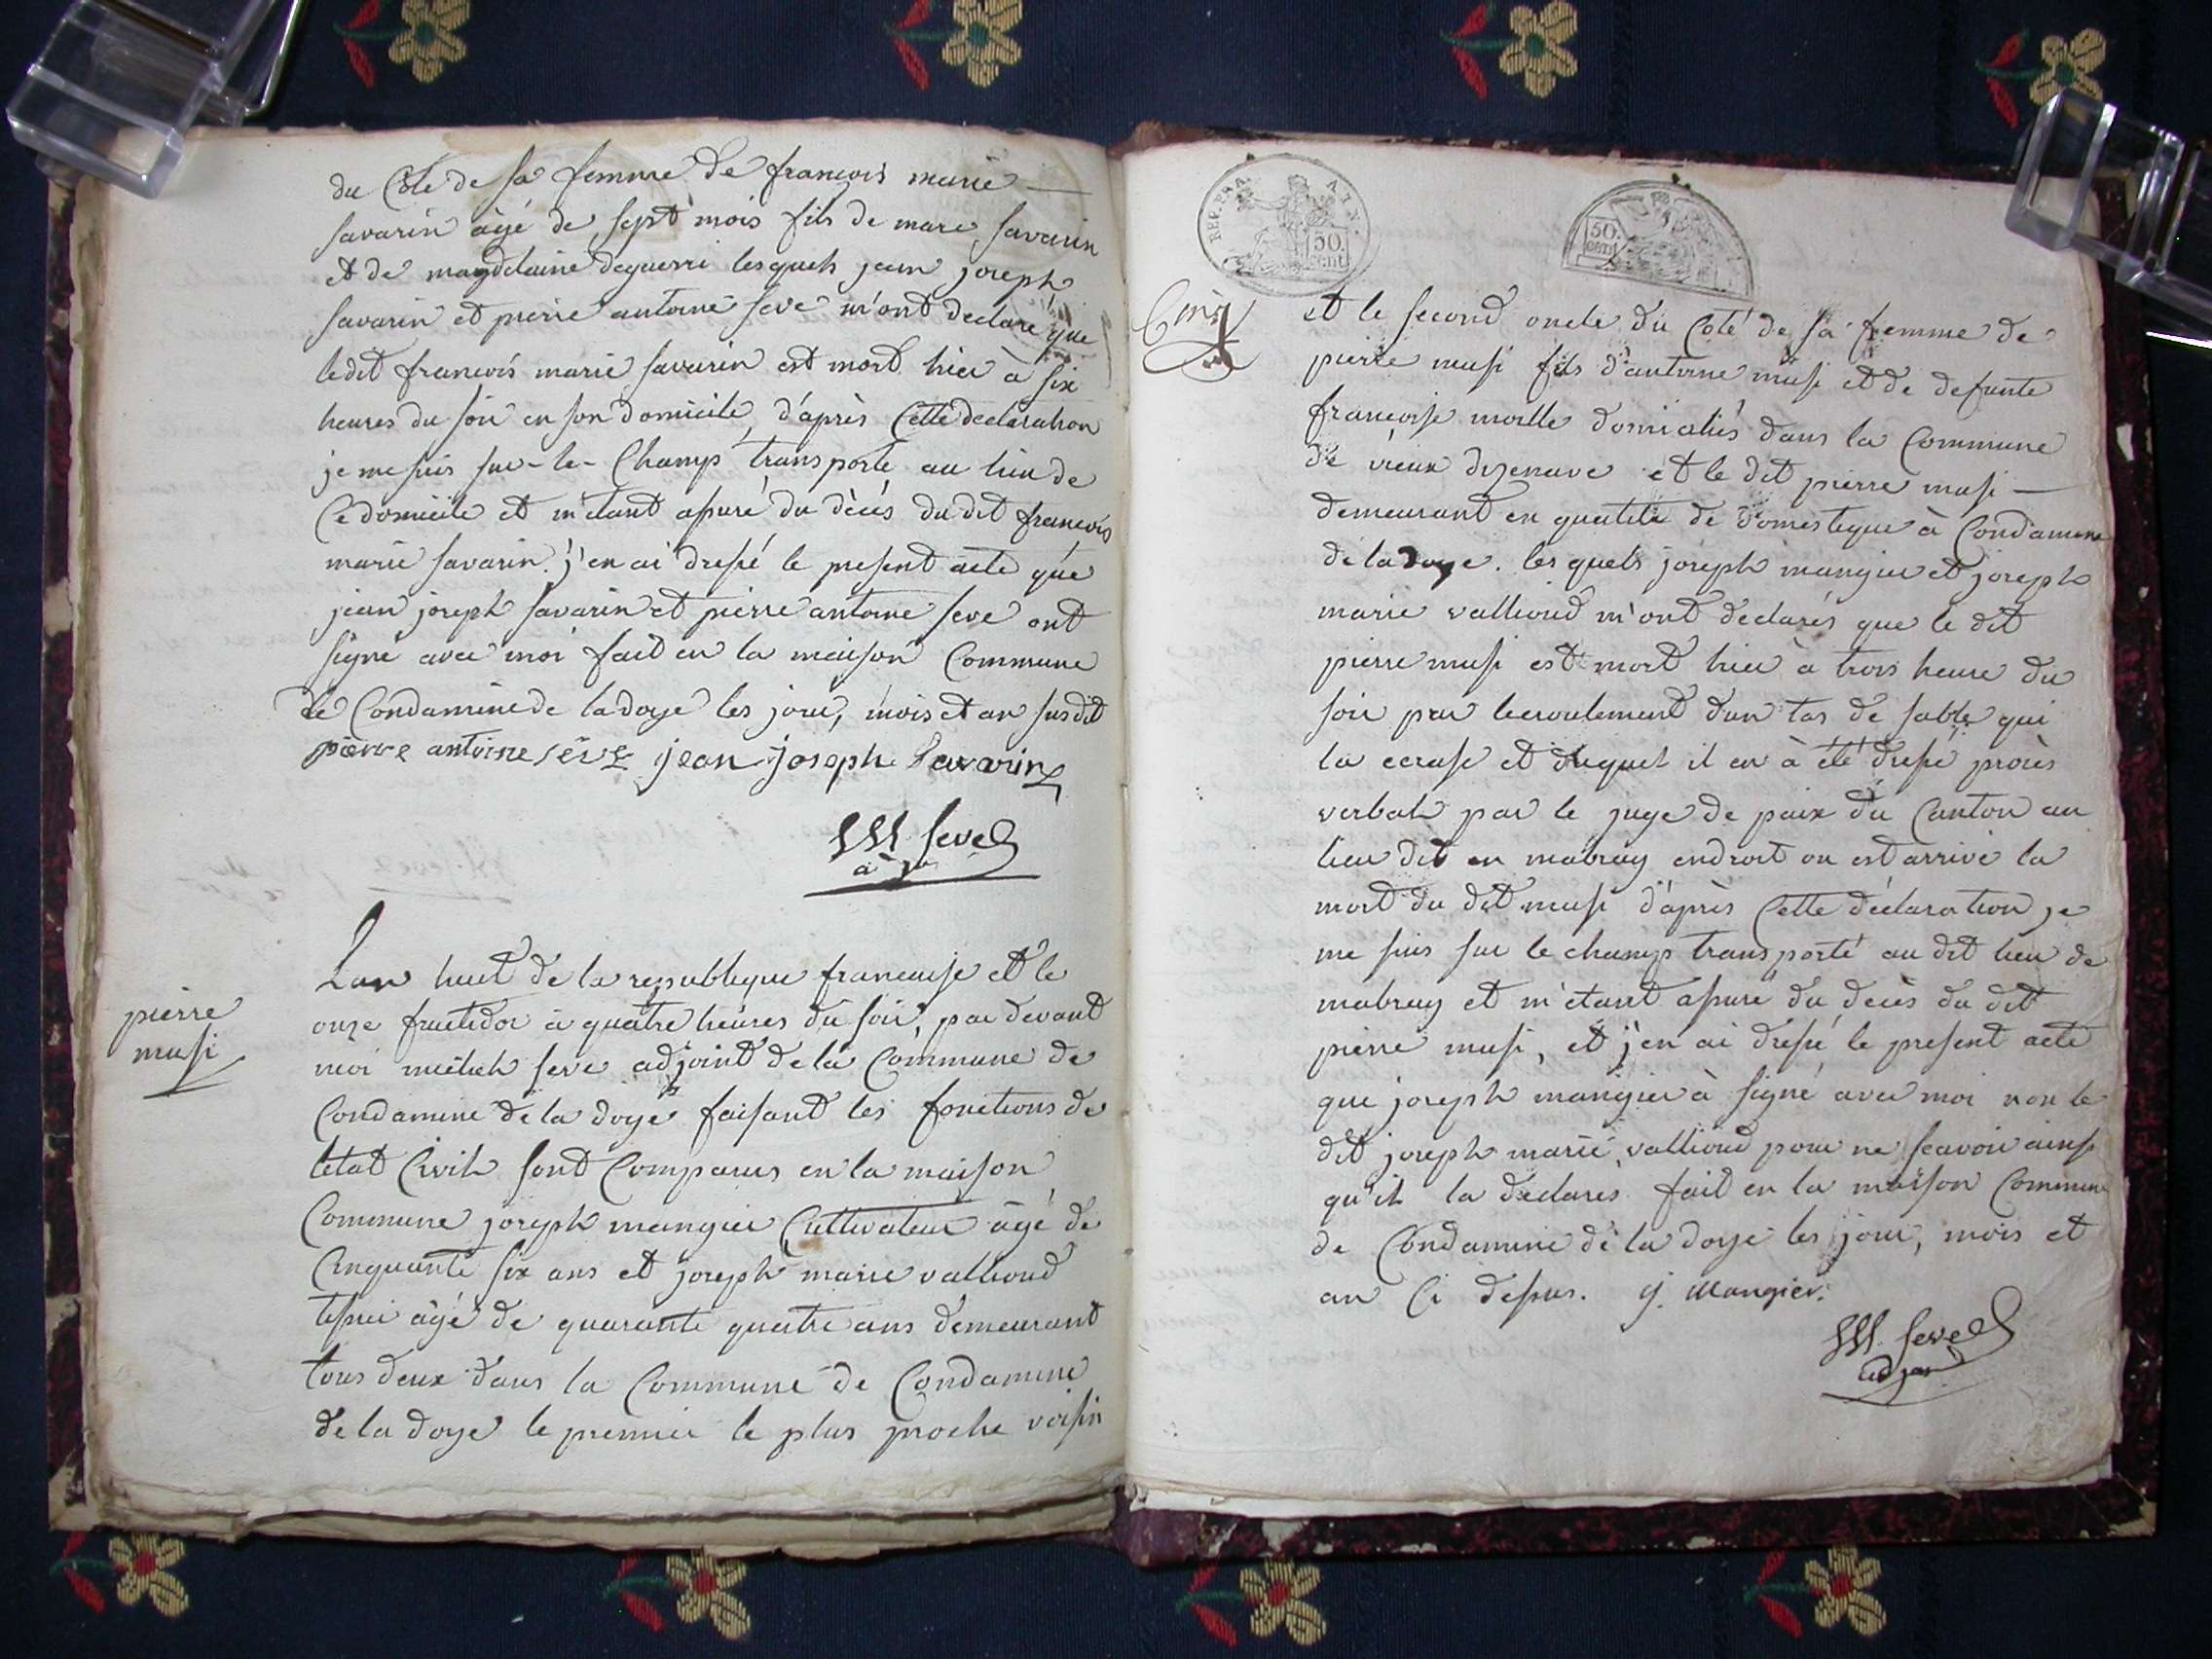 du Côté de sa femme de francois marie —
savarin âgé de sept mois fils de marc savarin
et de magdelaine deguerri lesquels jean joseph
savarin et pierre antoine seve m'ont declaré que
ledit francois marie savarin est mort hier à six
heures du soir en son domicile, d'après Cette declaration
je me suis sur-le-Champ transporté au lieu de
Ce domicile et m'étant assuré du décès du dit francois
marie savarin. j'en ai dressé le present acte que
jean joseph savarin et pierre antoine seve ont
signé avec moi fait en la maison Commune
de Condamine de la doye les jour, mois et an susdit
pierre antoine sève jean joseph Savarin
M. Seve
pierre
musi
Lan huit de la republique francaise et le
onze fructidor à quatre heures du soir, par devant
moi michel seve adjoint de la Commune de
Condamine de la doye faisant les fonctions de
létat Civil sont Comparus en la maison
Commune joseph mangier Cultivateur âgé de
Cinquante six ans et joseph marie vallioud
tissier âgé de quarante quatre ans demeurant
tous deux dans la Commune de Condamine
de la doye le premier le plus proche voisin
REP. FRA. AIN.
50. cent
50. cent
et le second oncle du Coté de sa femme de
pierre musi fils d'antoine musi et de defunte
francoise domiciliés dans la Commune
de vieux dizenave et le dit pierre musi —
demeurant en qualité de domestique à Condamine
de la doye. lesquels joseph mangier et joseph
marie vallioud m'ont declarés que le dit
pierre musi est mort hier à trois heure du
soir par lecroulement d'un tas de sable qui
la ecrasé et duquel il en à été dressé procès
verbal par le juge de paix du Canton au
lieu dit en mabray endroit ou est arrivé la
mort du dit musi d'après Cette déclaration je
me suis sur le champ transporté au dit lieu de
mabray et m'étant assuré du decès du dit
pierre musi, et j'en ai dressé le present acte
que joseph mangier à signé avec moi non le
dit joseph marie vallioud pour ne scavoir ainsi
qu'il la declarés fait en la maison Commune
de Condamine de la doye les jour, mois et
an Ci dessus. J. Mangier.
M. Seve
adjoint